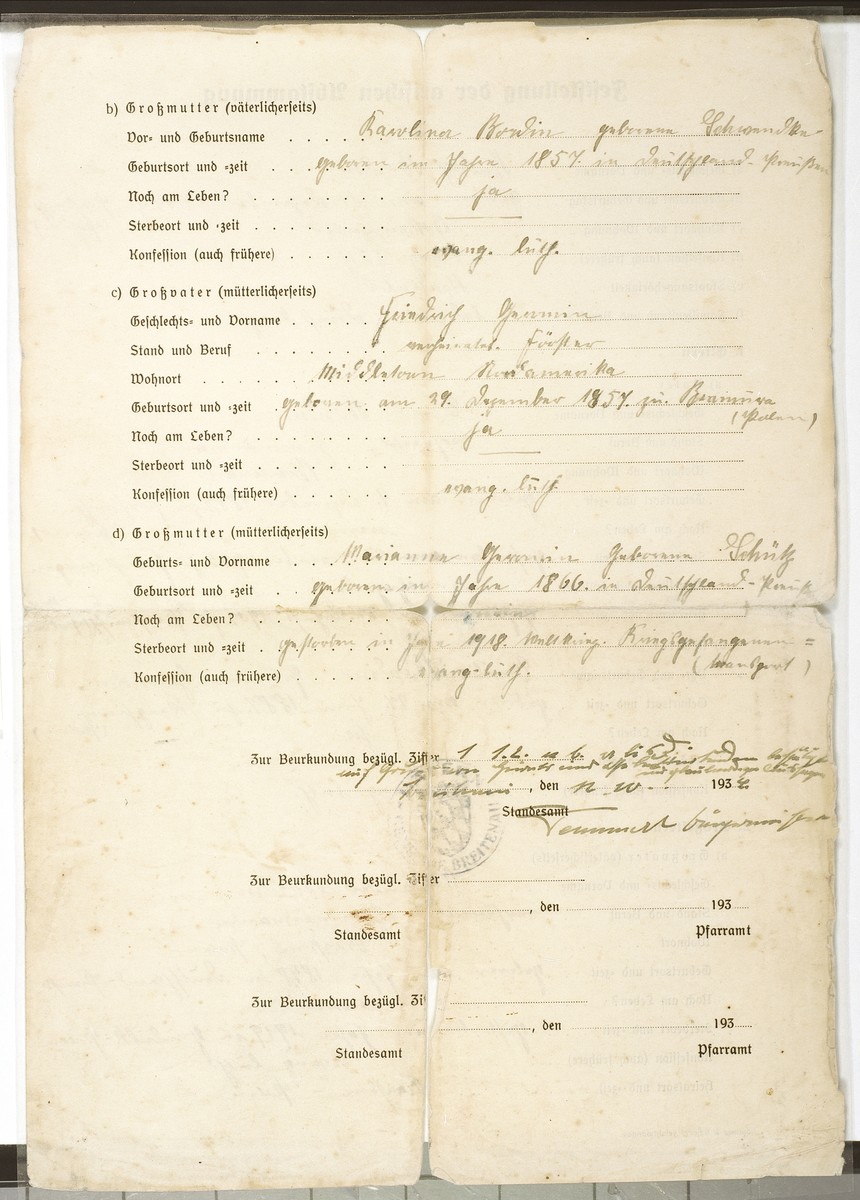 b) Großmutter (väterlicherseits)
Vor- und Geburtsname . . . . Karolina Bordin geborene Schwendke
Geburtsort und =zeit . . . geboren im Jahre 1857. in Deutschland-Preußen
Noch am Leben? . . . . . . . . ja
Sterbeort und =zeit . . . . . . . .
Konfession (auch frühere) . . . . . . evang. luth.
c) Großvater (mütterlicherseits)
Geschlechts= und Vorname . . . . . Friedrich Germin
Stand und Beruf . . . . . . . . verheiratet. Förster
Wohnort . . . . . . . Middletown Nordamerika
Geburtsort und =zeit . geboren am 29. Dezember 1857. zu
(Polen)
Noch am Leben? . . . . . . . . ja
Sterbeort und =zeit . . . . . . . .
Konfession (auch frühere) . . . . . evang. luth
d) Großmutter (mütterlicherseits)
Geburts= und Vorname . . . Marianna Germin Geborene Schütz
Geburtsort und =zeit . . . geboren in Jahre 1866. in Deutschland-Preuß
Noch am Leben? . . . . . . . . nein
Sterbeort und =zeit . gestorben in 1918. Weltkrieg. Kriegsgefangenen =
(transport)
Konfession (auch frühere) . . . . . evang-luth.
Zur Beurkundung bezügl. Ziffer 1
auf
, den 193
Standesamt
Bürgermeister
BREITENAU
Zur Beurkundung bezügl. Ziffer
, den 193
Standesamt Pfarramt
Zur Beurkundung bezügl. Zi
, den 193
Standesamt Pfarramt